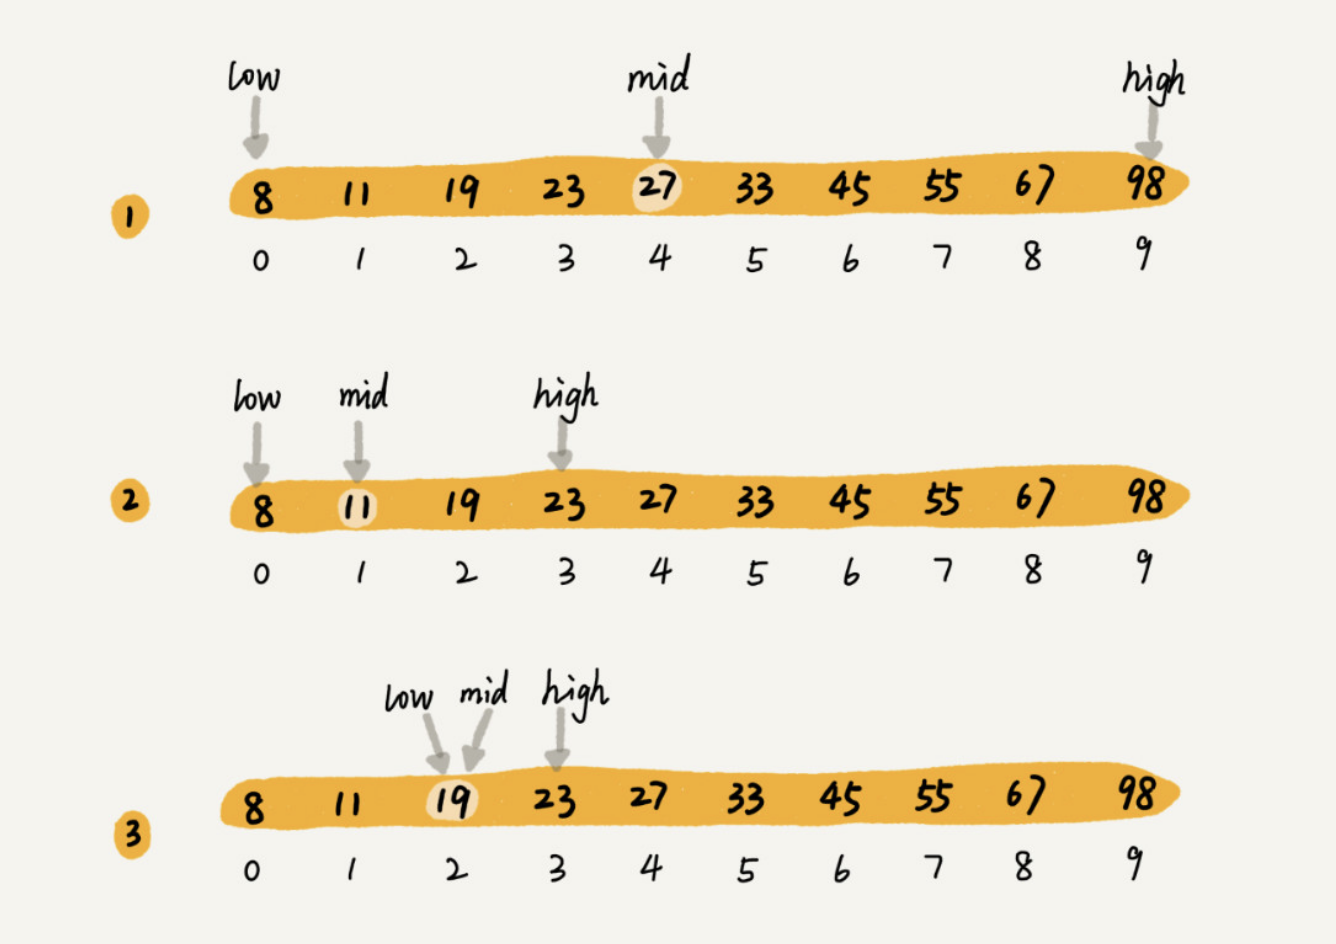 low mid high
8 11 19 23 27 33 45 55 67 98
1
0 1 2 3 4 5 6 7 8 9
low mid high
8 11 19 23 27 33 45 55 67 98
2
0 1 2 3 4 5 6 7 8 9
low mid high
8 11 19 23 27 33 45 55 67 98
3
0 1 2 3 4 5 6 7 8 9